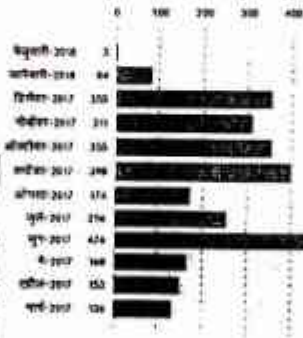 0 100 200 300 400
फेब्रुवारी-2018 3
जानेवारी-2018 84
डिसेंबर-2017 355
नोव्हेंबर-2017 311
ऑक्टोबर-2017 355
सप्टेंबर-2017 398
ऑगस्ट-2017
जुलै-2017
जून-2017 474
मे-2017 160
एप्रिल-2017
मार्च-2017 126